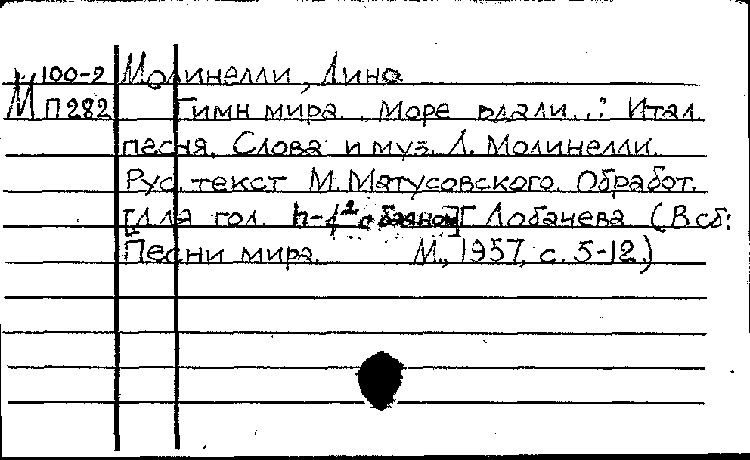 М 100-2 Молинелли, Лина
П 282 Гимн мира. Море вдали...: Итал.
песня. Слова и муз. Л. Молинелли.
Рус. текст М. Матусовского. Обработ.
[Для гол. h-f² с баяном] Г. Лобачева (В сб:
Песни мира. М., 1957, с. 5-12.)